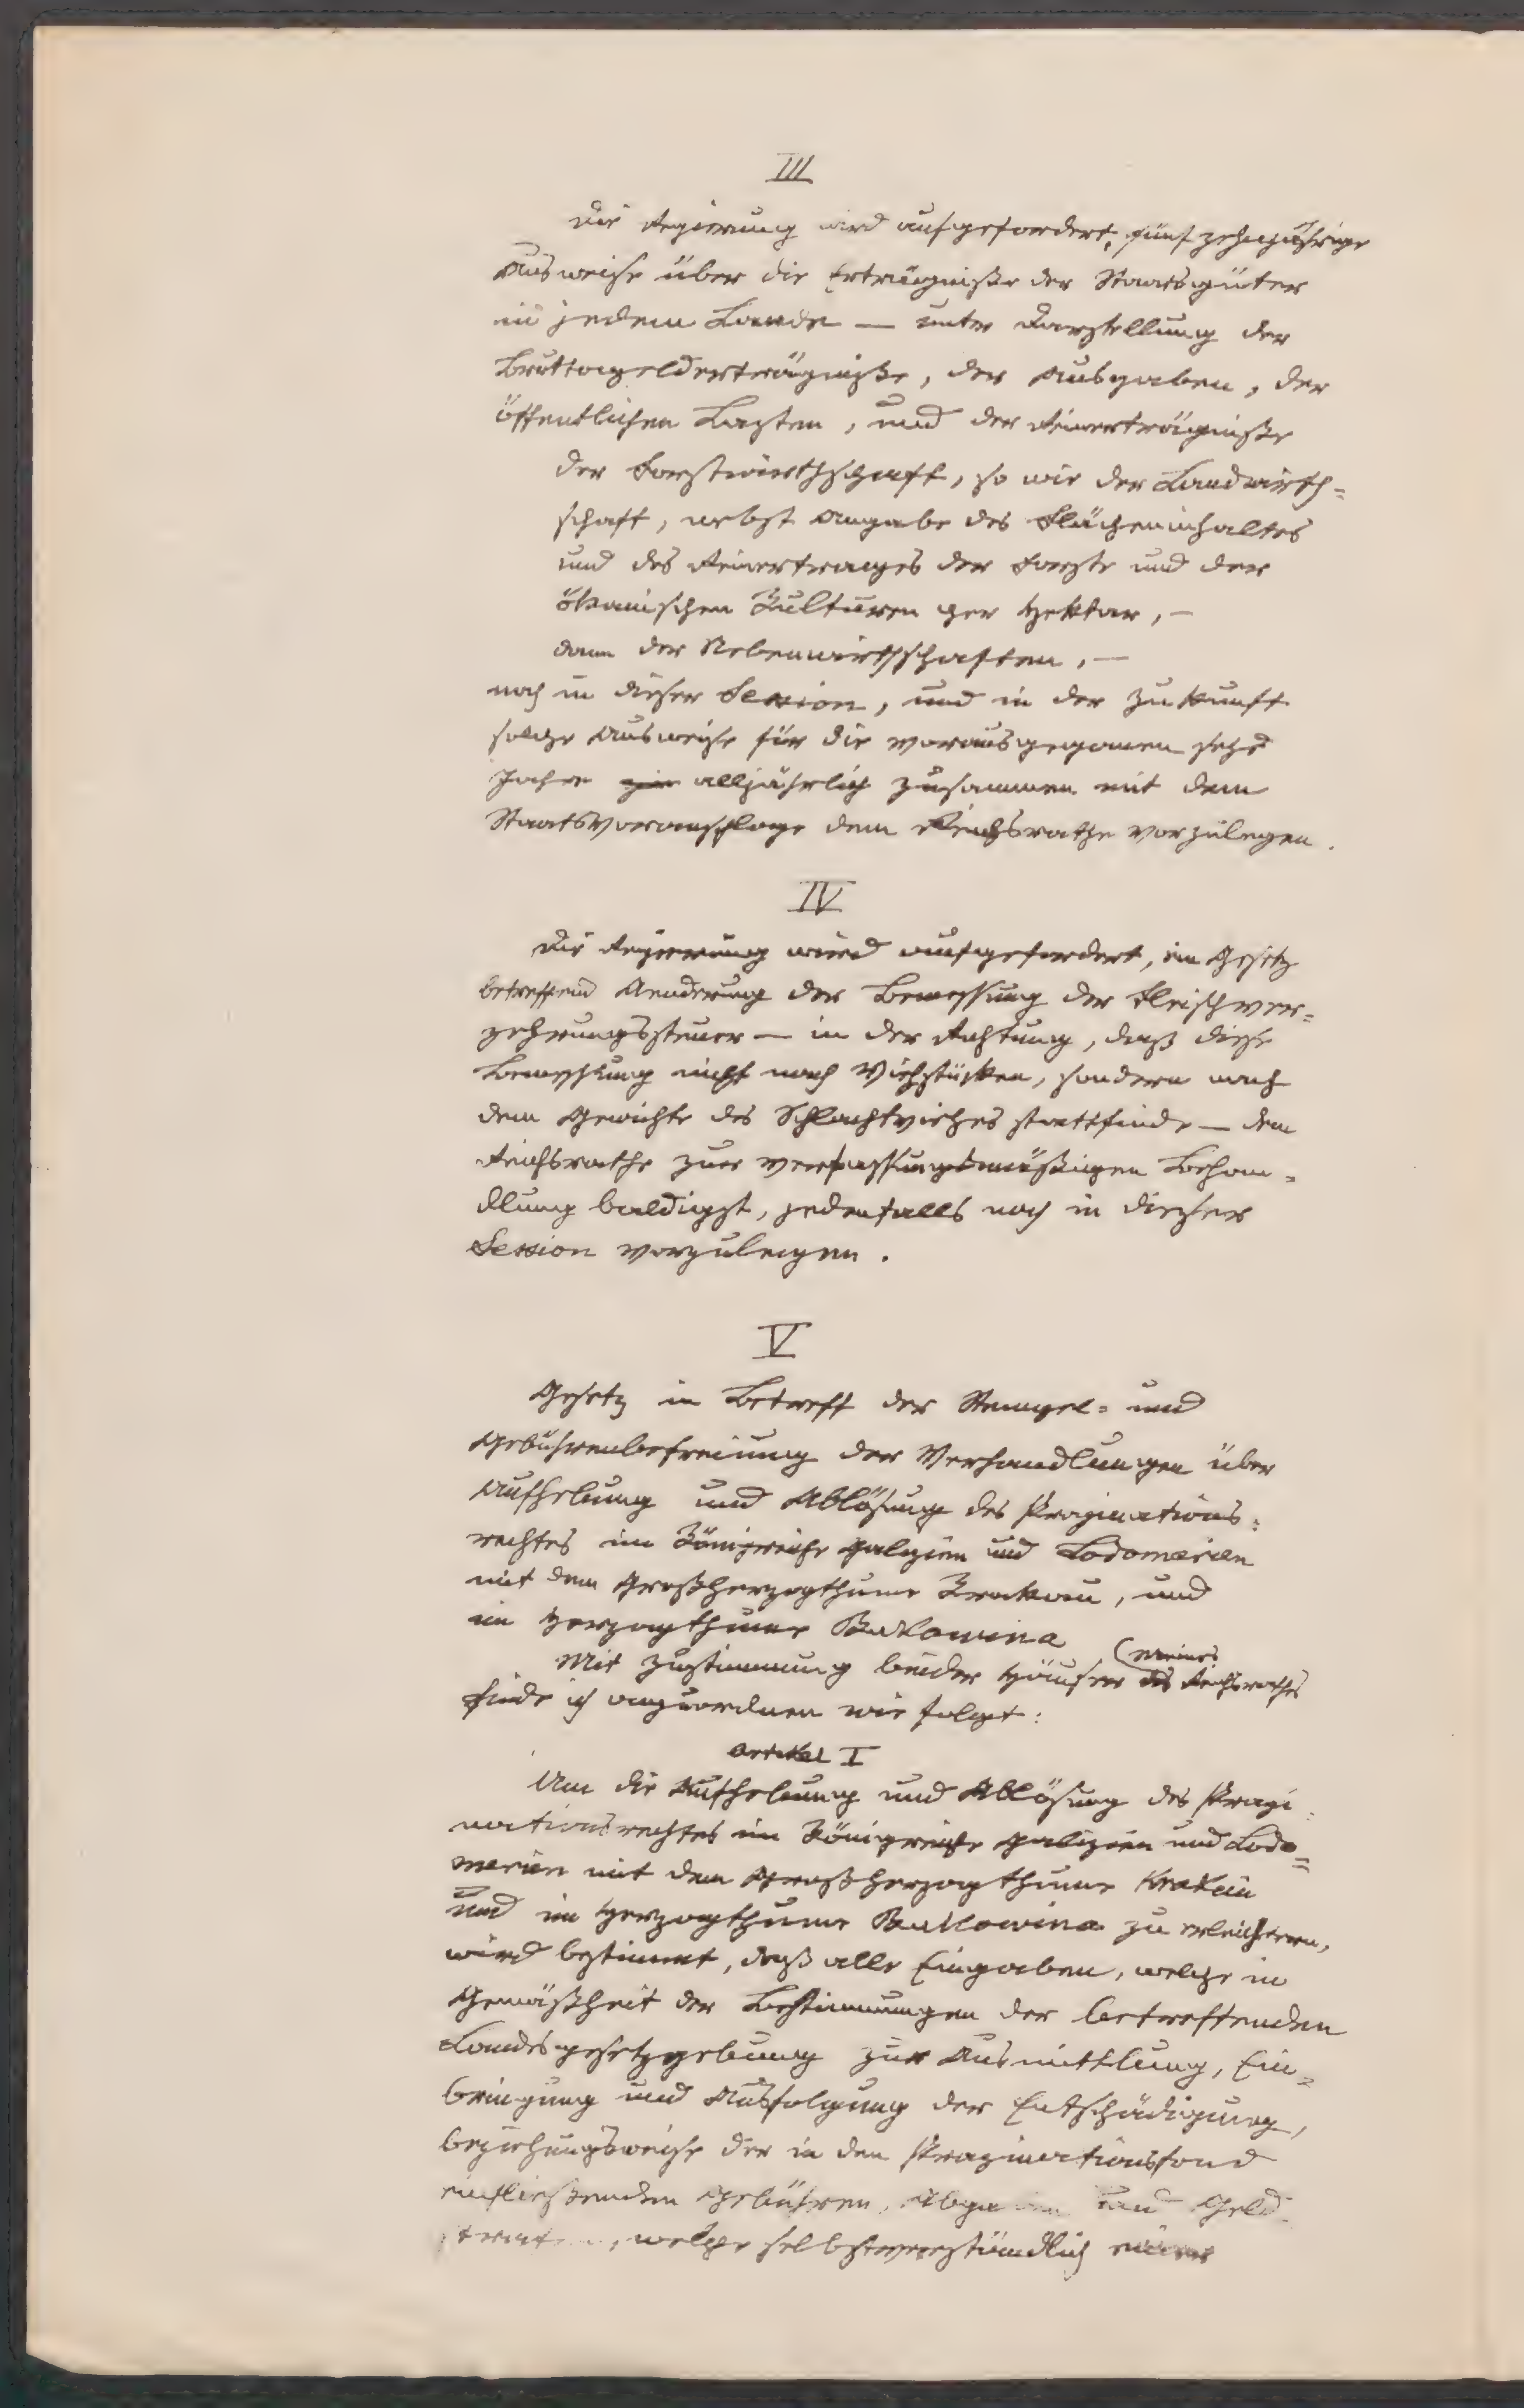 III
Die Regierung wird aufgefordert, fünfzehnjährige
Ausweise über die Erträgnisse der Staatsgüter
in jedem Lande — unter Darstellung der
Bruttogelderträgnisse, der Ausgaben, der
öffentlichen Lasten, und der Reinerträgnisse
der Forstwirthschaft, so wie der Landwirth=
schaft, nebst Angabe des Flächeninhaltes
und des Reinertrages der Forste und der
ökonischen Kulturen per Hektar, —
dann der Nebenwirthschaften, —
noch in dieser Session, und in der Zukunft
solche Ausweise für die vorausgegangenen sechs
Jahre alljährlich zusammen mit dem
Staatsvoranschlage dem Reichsrathe vorzulegen.
IV
Die Regierung wird aufgefordert, ein Gesetz
betreffend Aenderung der Bemessung der Fleischver=
zehrungssteuer — in der Richtung, daß diese
Bemessung nicht nach Viehstücken, sondern nach
dem Gewichte des Schlachtviehes stattfinde — dem
Reichsrathe zur verfassungsmäßigen Behan=
dlung baldigst, jedenfalls noch in dieser
Session vorzulegen.
V
Gesetz in Betreff der Stempel= und
Gebührenbefreiung der Verhandlungen über
Aufhebung und Ablösung des Propinations=
rechtes im Königreiche Galizien und Lodomerien
mit dem Großherzogthume Krakau, und
im Herzogthume Bukowina
Mit Zustimmung beider Häuser des (meines Reichsrathes
finde ich anzuordnen wie folgt:
Artikel I
Um die Aufhebung und Ablösung des Propi=
nationsrechtes im Königreiche Galizien und Lodo=
merien mit dem Großherzogthume Krakau
und im Herzogthume Bukowina zu erleichtern,
wird bestimmt, daß alle Eingaben, welche in
Gemäßheit der Bestimmungen der betreffenden
Landesgesetzgebung zur Ausmittlung, Ein=
bringung und Ausfolgung der Entschädigung,
beziehungsweise der in den Propinationsfond
einfließenden Gebühren, und Geld
, welche selbstverständlich